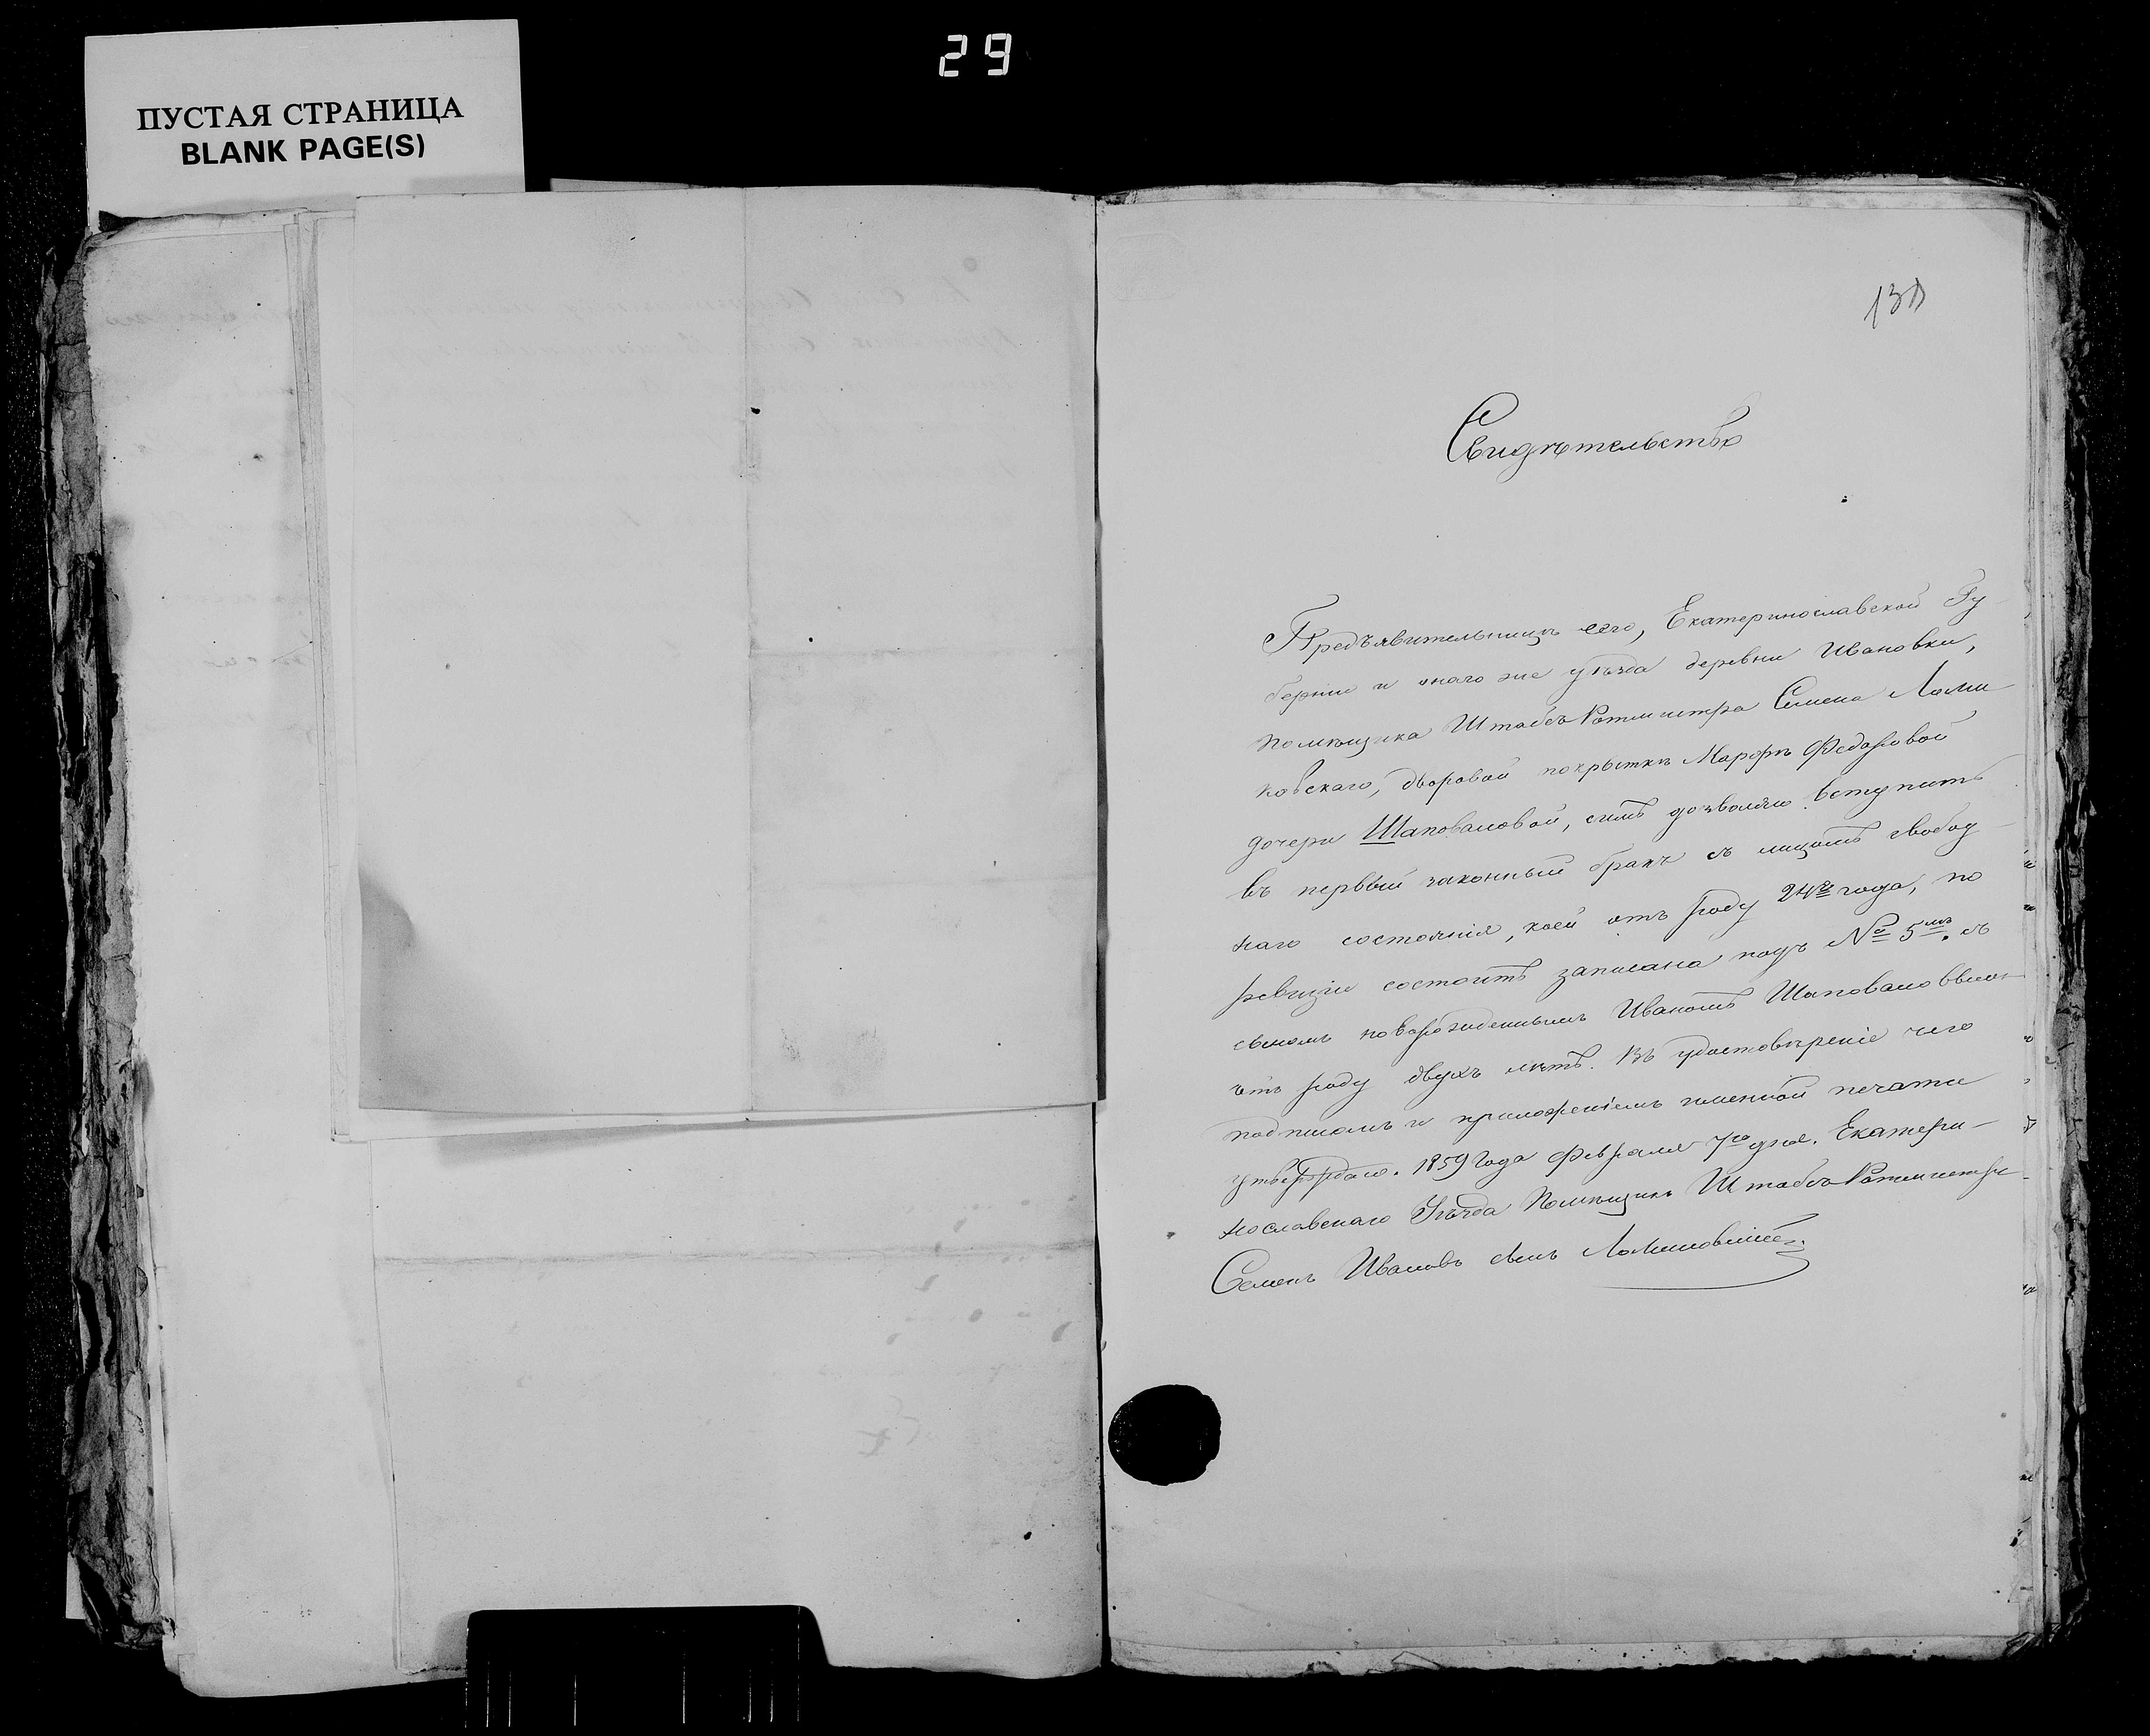 29
ПУСТАЯ СТРАНИЦА
BLANK PAGE(S)
Свидѣтельство
Предъявительницѣ сего, Екатеринославской Гу-
берніи и онаго же уѣзда деревни Ивановки,
помѣщика Штабсъ Ротмистра Семена Ломи
ковскаго, дворовой покрыткѣ Марфѣ Федоровой
дочери Шаповаловой, симъ дозволяю вступить
въ первый законный бракъ съ лицомъ свобод-
наго состоянія, коей отъ роду 24ре года, по
ревизіи состоитъ записана подъ № 5мъ. съ
сыномъ новорожденнымъ Иваномъ Шаповаловымъ
отъ роду двухъ лѣтъ. Въ удостовѣреніе чего
подписомъ и приложеніемъ именной печати
утверждаю. 1859 года Февраля 7го дня. Екатери-
нославскаго Уѣзда Помѣщикъ Штабсъ Ротмистръ
Семенъ Ивановъ сынъ Ломиковскій